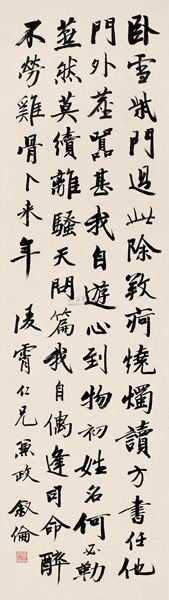 卧雪柴門過此除疴燒燭讀方書任他
門外塵囂甚我自遊心到物初姓名何必勒
燕然莫續離騷天問篇我自偶逢司命醉
不勞雞骨卜來年
凌霄仁兄兼政 叙倫